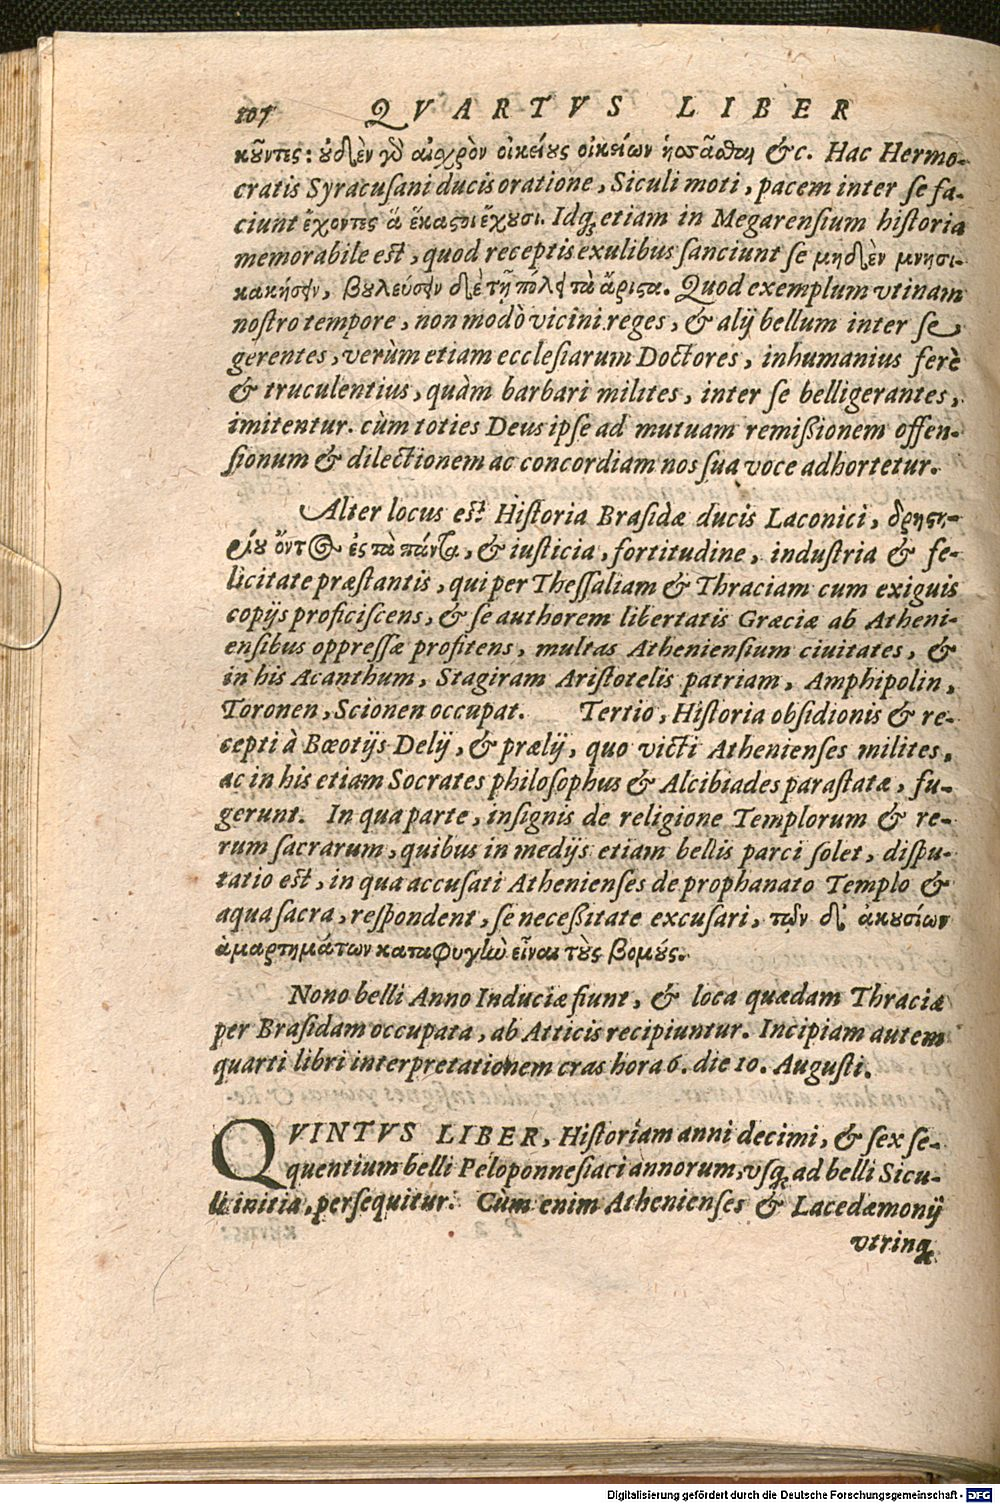 107 QVARTVS LIBER
κοῦντες: οὐδὲν γὸ αἰχρὸν οἰκείους οἰκείων ἡσσᾶσθαι &c. Hac Hermo-
cratis Syracusani ducis oratione, Siculi moti, pacem inter se fa-
ciunt ἔχοντες ἃ ἕκαστοι ἔχουσι. Idq; etiam in Megarensium historia
memorabile est, quod receptis exulibus sanciunt se μηδὲν μνησι-
κακήσειν, βουλεύσειν δὲ τῇ πόλει τὰ ἄριστα. Quod exemplum vtinam
nostro tempore, non modò vicini reges, & alij bellum inter se
gerentes, verùm etiam ecclesiarum Doctores, inhumanius ferè
& truculentius, quàm barbari milites, inter se belligerantes,
imitentur. cùm toties Deus ipse ad mutuam remißionem offen-
sionum & dilectionem ac concordiam nos sua voce adhortetur.
Alter locus est Historia Brasidæ ducis Laconici, δρηστη-
ρίου ὄντος ἐς τὰ πάντα, & iusticia, fortitudine, industria & fe-
licitate præstantis, qui per Thessaliam & Thraciam cum exiguis
copijs proficiscens, & se authorem libertatis Græciæ ab Atheni-
ensibus oppressæ profitens, multas Atheniensium ciuitates, &
in his Acanthum, Stagiram Aristotelis patriam, Amphipolin,
Toronen, Scionen occupat. Tertio, Historia obsidionis & re-
cepti à Bœotijs Delij, & prælij, quo victi Athenienses milites,
ac in his etiam Socrates philosophus & Alcibiades parastatæ, fu-
gerunt. In qua parte, insignis de religione Templorum & re-
rum sacrarum, quibus in medijs etiam bellis parci solet, dispu-
tatio est, in qua accusati Athenienses de prophanato Templo &
aqua sacra, respondent, se neceßitate excusari, τῶν δ' ἀκουσίων
ἁμαρτημάτων καταφυγὴν εἶναι τοὺς βομούς.
Nono belli Anno Induciæ fiunt, & loca quædam Thraciæ
per Brasidam occupata, ab Atticis recipiuntur. Incipiam autem
quarti libri interpretationem cras hora 6. die 10. Augusti.
QVINTVS LIBER, Historiam anni decimi, & sex se-
quentium belli Peloponnesiaci annorum, vsq; ad belli Sicu-
li initia, persequitur. Cùm enim Athenienses & Lacedæmonij
vtrinq;
Digitalisierung gefördert durch die Deutsche Forschungsgemeinschaft - DFG